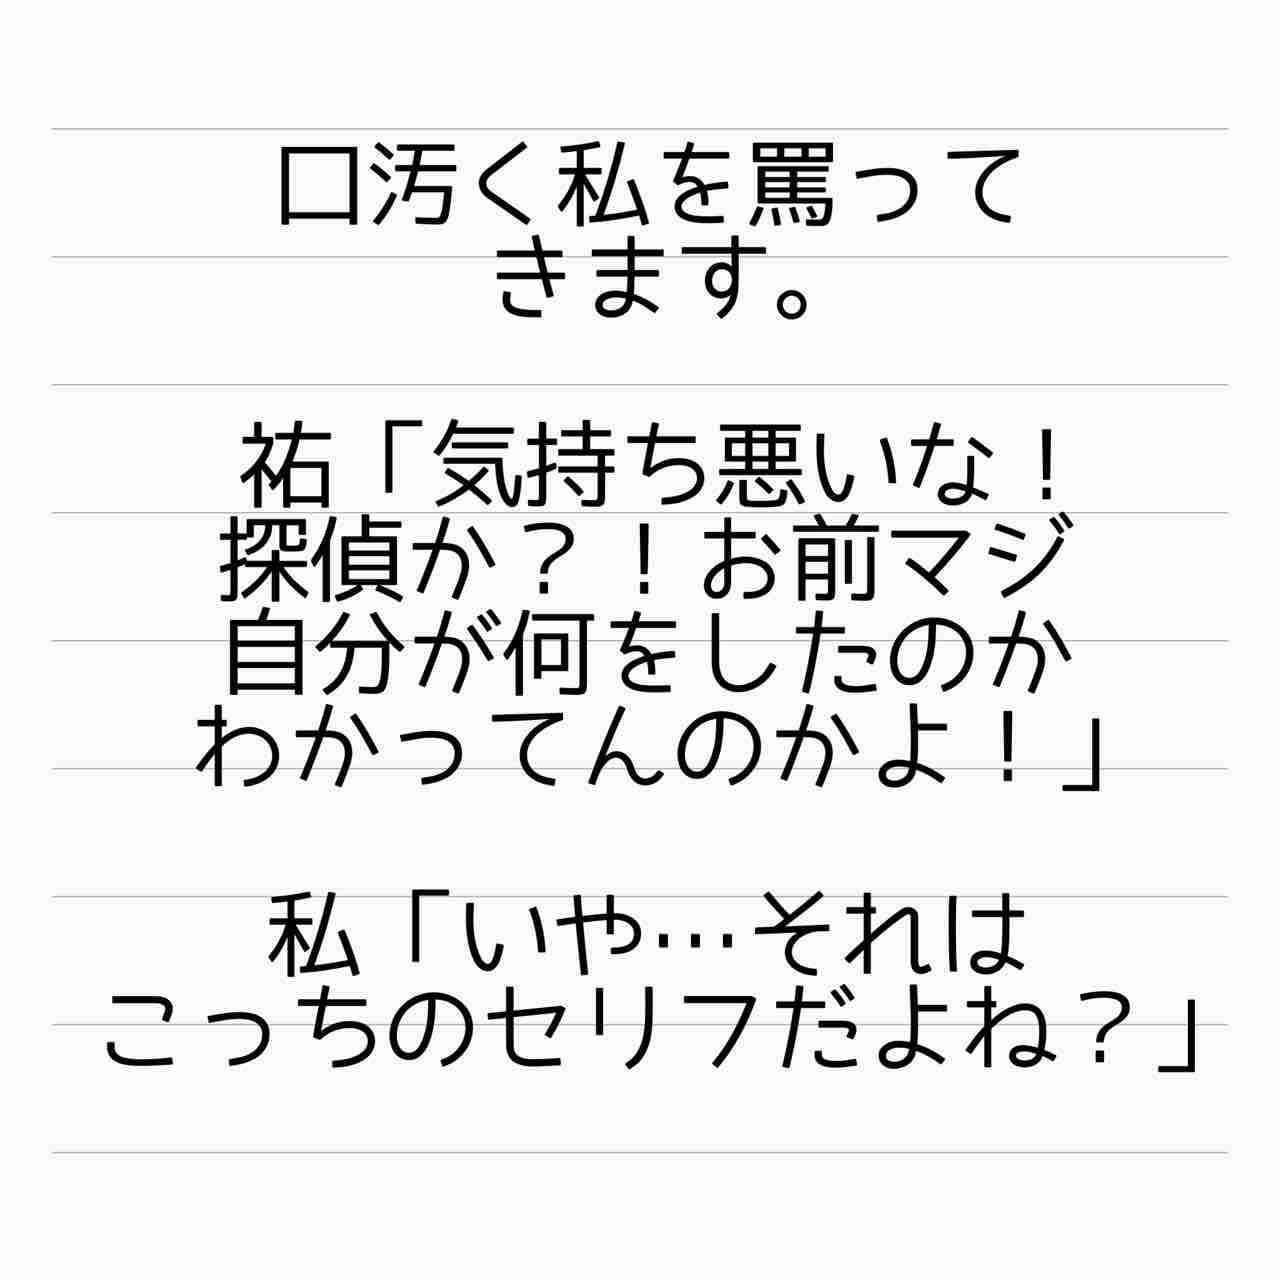 口汚く私を罵って
きます。
祐「気持ち悪いな！
探偵か？！お前マジ
自分が何をしたのか
わかってんのかよ！」
私「いや…それは
こっちのセリフだよね？」